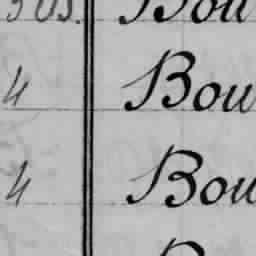 303. Bou
4 Bou
4 Bou